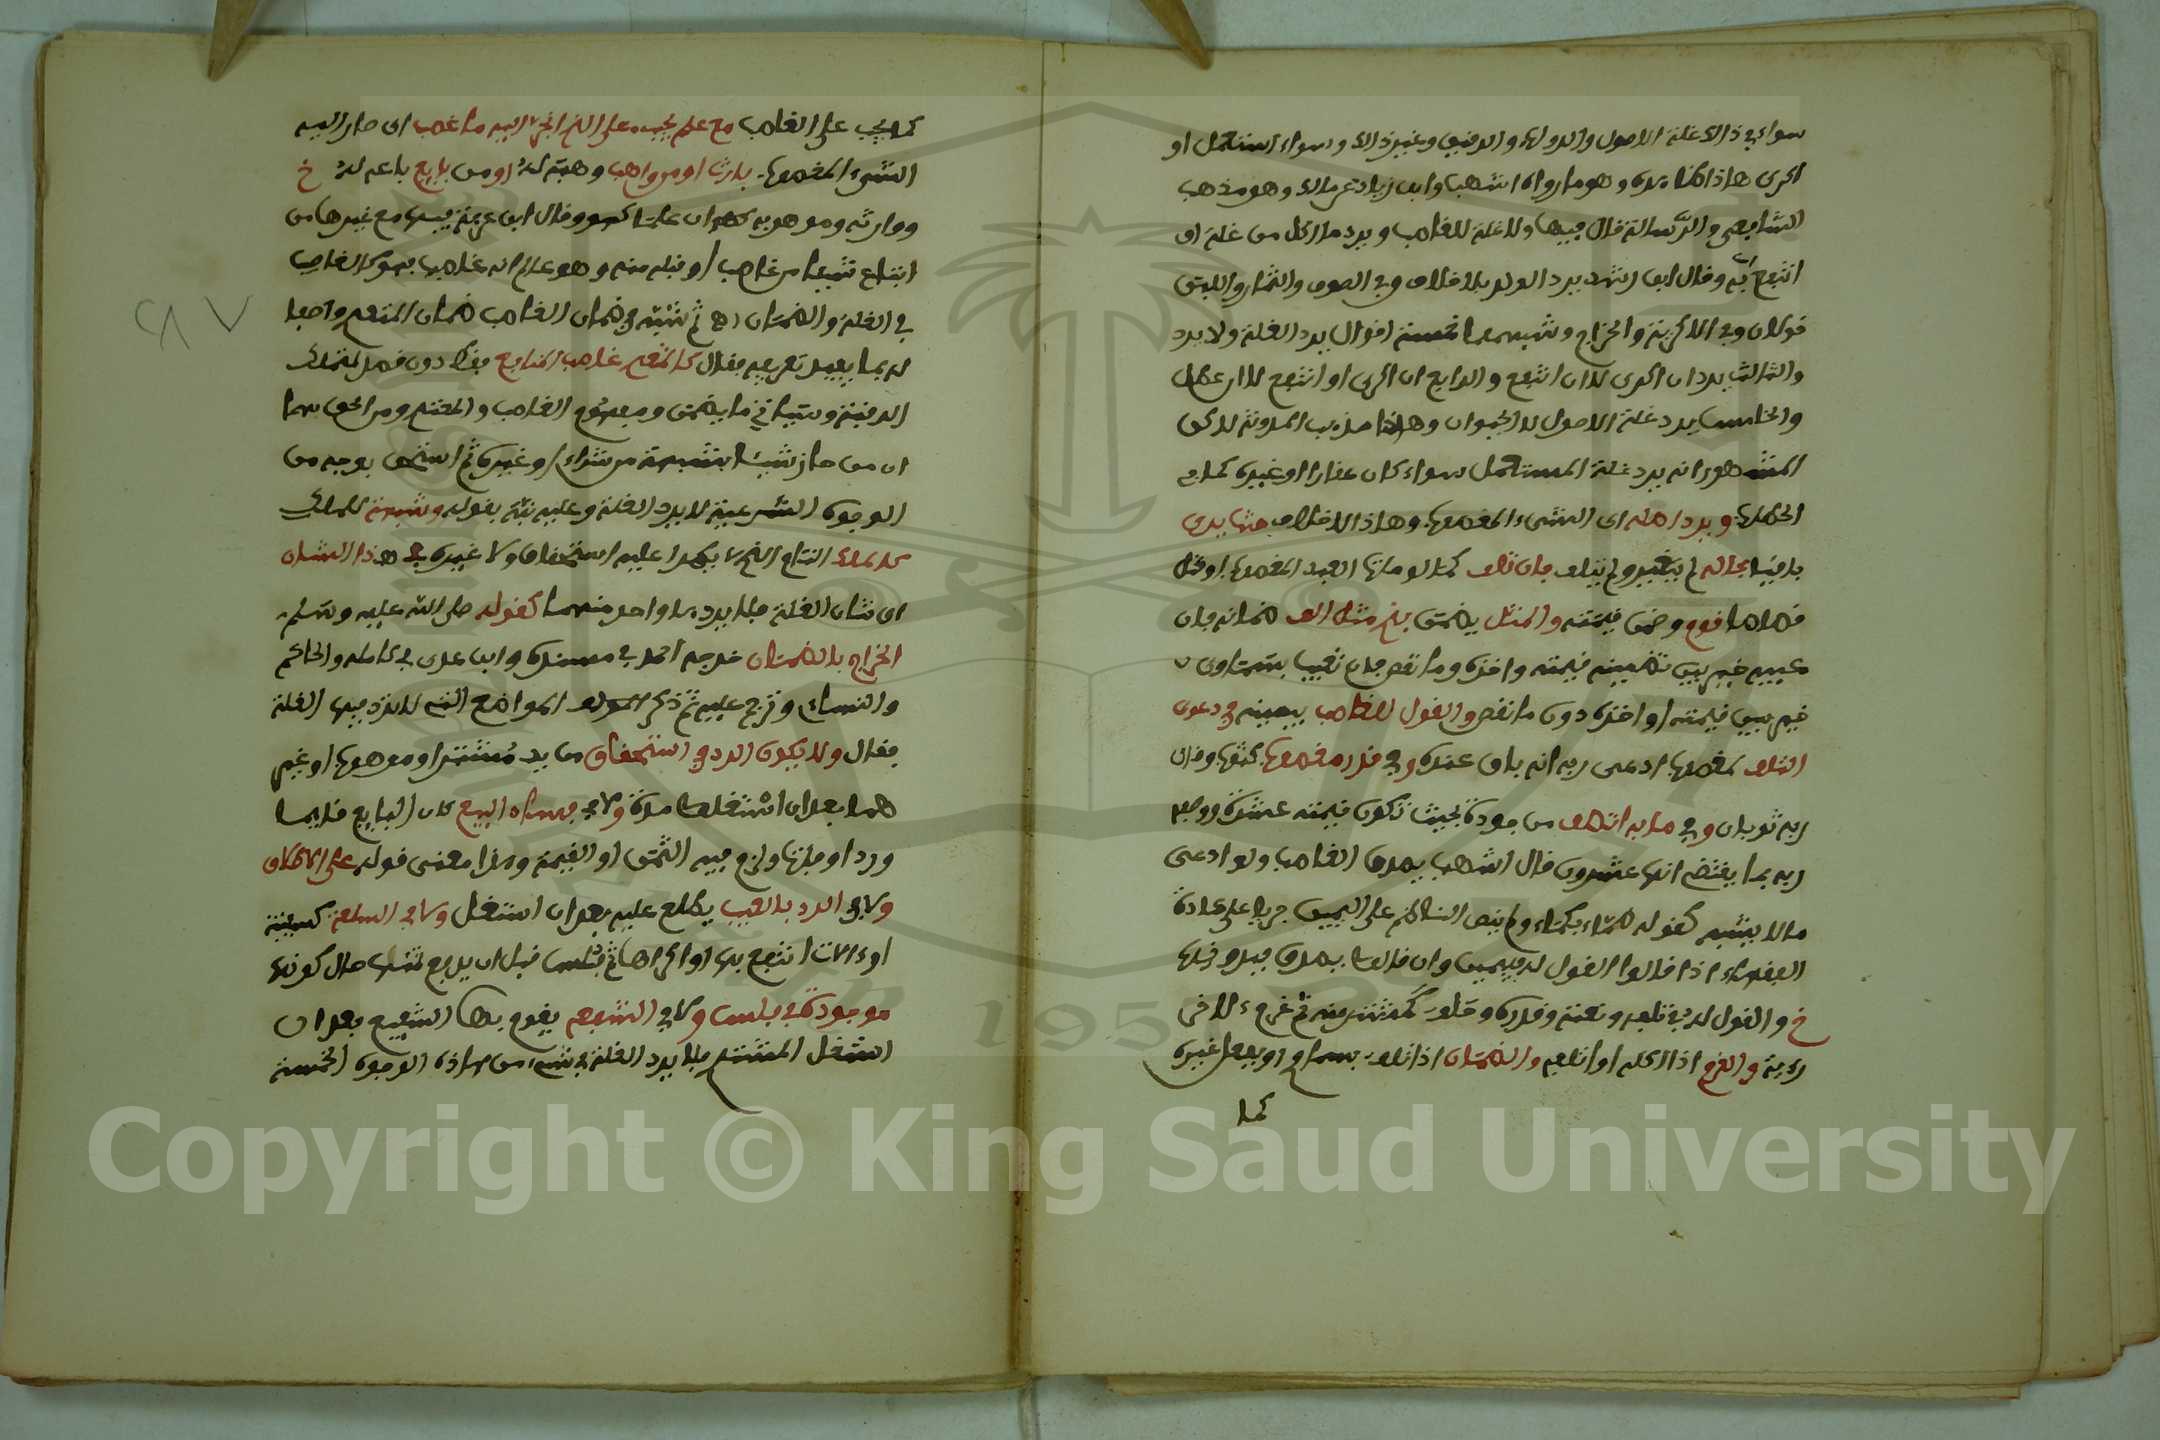 سواء في ذلك غلة الاصول والدواب والرقيق وغير ذالك وسواء استعمل او
اكرى هاذا وهو ما رواه اشهب وابن زياد عن مالك وهو مذهب
الشافعي والرسالة قال فيها ولا غلة للغاصب ويرد ما اكل من غلة او
انتفع به وقال ابن رشد يرد الولد بلا خلاف وفي الصوف والثمار واللبن
قولان وفي الاكرية والخراج وشبههما خمسة اقوال يرد الغلة ولا يرد
والثالث يرد ان اكرى لا ان انتفع والرابع ان اكرى او انتفع لا ان عطل
والخامس يرد غلة الاصول لا الحيوان وهاذا مذهب المدونة لاكن
المشهور انه يرد غلة المستعمل سواء كان عقارا او غيره كما مر
ويرد اصله اى الشيء المغصوب وهاذا لا خلاف حيث يرى
باقيا بحاله لم يتغير ولم يتلف فان تلف كما لو مات العبد المغصوب او قتل
قصاصا قوم وضمن قيمته والمثل يضمن في مثل الف ضمانه فان
عيبه خير بين تضمينه قيمته واخذه وما نقص فان تعيب بسماوى
خير بين قيمته او اخذه دون ما نقص والقول للغاصب بيمينه في دعوى
التلف لمغصوب ادعى ربه انه باق عنده وفي قدر مغصوب كثوب وقال
ربه ثوبان وفي ما به اتصف من جودة بحيث تكون قيمته عشرة ووصفه
ربه بما يقتضى انها عشرون قال اشهب يصدق الغاصب ولو ادعى
مالا يشبه كقوله صماء بكماء ولم ينص الناظم على اليمين جريا على عادة
الفقهاء اذا قالوا القول له فبيمين وان قالوا يصدق فبدونها
خ والقول له في تلفه ونعته وقدره وحلف كمشتر منه ثم غرم لاخر
رؤية والغرم اذا اكله او اتلفه والضمان اذا تلف بسماوى او بفعل غيره
كما
كما يجب على الغاصب مع علم يجب على الذى انجر اليه ما غصب اى صار اليه
الشيء المغصوب بارث او من واهب وهبه له او من بايع باعه له خ
ووارثه وموهوبه ان علما كهو وقال ابن عرفة فيها مع غيرها من
ابتاع شيئا من غاصب او قبله منه وهو عالم انه غاصب فهو كالغاصب
في الغلة والضمان اه ثم شبه في ضمان الغاصب ضمان المتعدى
له بما يفيد تعريفه فقال كالمتعدى غاصب المنافع فقط دون قصد لتملك
الرقبة وسياتي ما يضمن ومفهوم الغاصب والمتعدى ومن الحق بهما
ان من حاز شيئا بشبهة من شراء او غيره ثم استحق بوجه من
الوجوه الشرعية لا يرد الغلة وعليه نبه بقوله وشبهة للملك
كالملك التام الذى لا يطرا عليه استحقاق ولا غيره في هذا الشان
اى شان الغلة فلا يرد بها واحد منهما كقوله صلى الله عليه وسلم
الخراج بالضمان خرجه احمد في مسنده وابن عدى في كامله والحاكم
والنسائى وترجم عليه ثم ذكر المولف المواضع التى لا ترد فيها الغلة
فقال ولا يكون الرد في استحقاق من يد مشتر او موهوب او غير
هما بعد ان استغلها مدة ولا في فساد البيع كان البايع قديما
ورد او فات ولزم فيه الثمن او القيمة وهذا معنى قوله على الاطلاق
ولا في الرد بالعيب يطلع عليه بعد ان استغل ولا في السلعة كسفينة
او ءالات انتفع بها او اكراها ثم فلس قبل ان يدفع ثمنها حال كونها
موجودة في فلس ولا في الشفع يقوم بها الشفيع بعد ان
استغل المشترى فلا يرد الغلة في شيء من هاذه الوجوه الخمسة
Copyright © King Saud University
1957